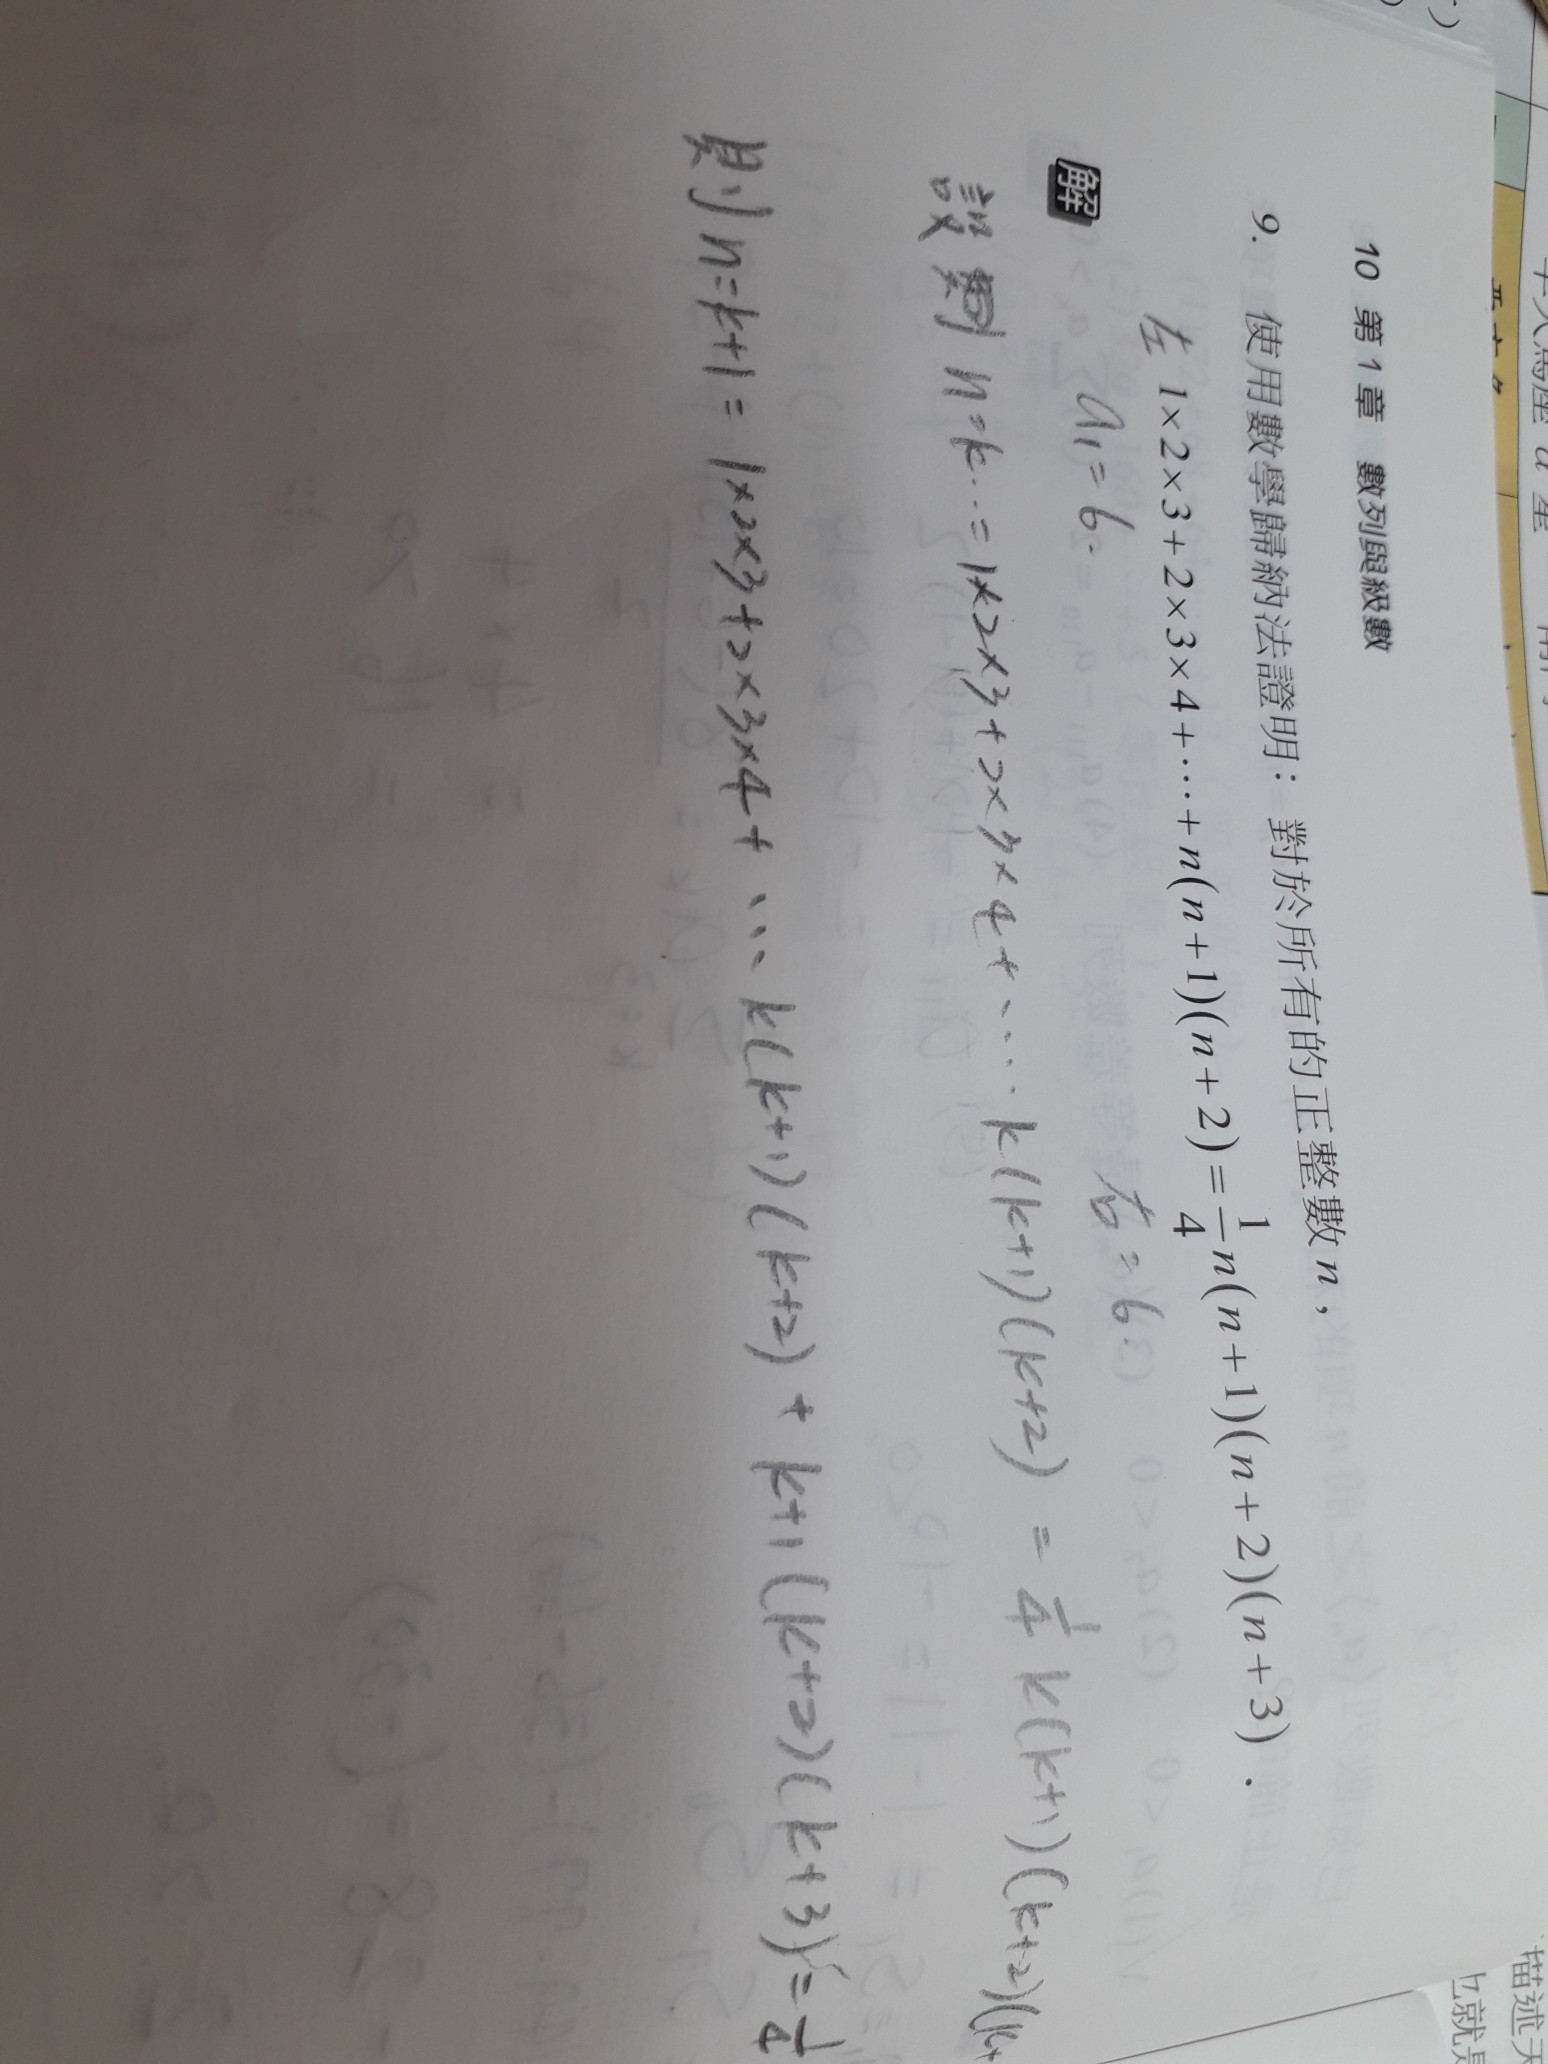 10 第1章 數列與級數
9. 使用數學歸納法證明：對於所有的正整數 n，
左 1×2×3+2×3×4+⋯+n(n+1)(n+2)=1/4 n(n+1)(n+2)(n+3).
解 a₁=6. 右=6
設 n=k…=1×2×3+2×3×4+.... k(k+1)(k+2) = 1/4 k(k+1)(k+2)(k+
則 n=k+1 = 1×2×3+2×3×4+ ... k(k+1)(k+2) + k+1(k+2)(k+3) = 1/4
描述天
也就是